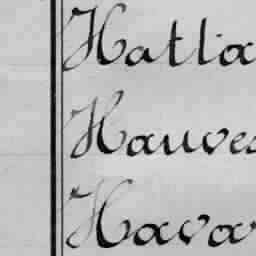 Hatlia
Hauves
Havar